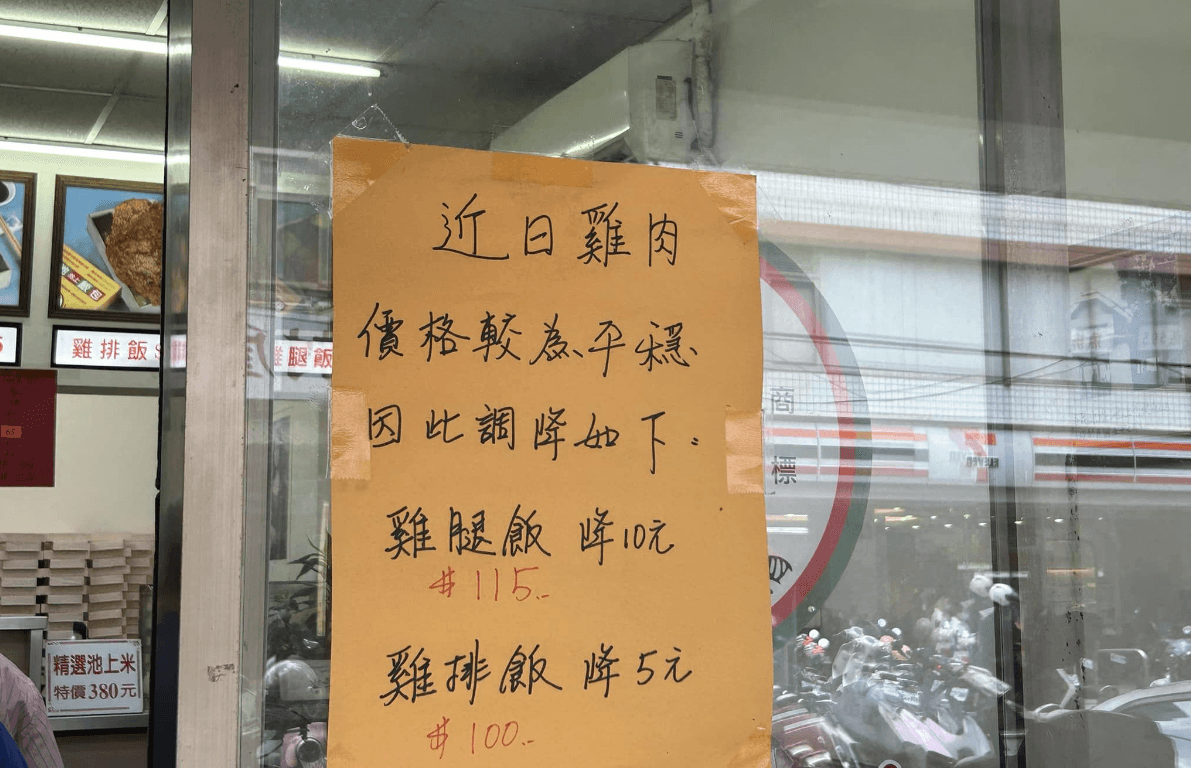 近日雞肉
價格較為平穩
因此調降如下:
雞腿飯 降10元
#115.-
雞排飯 降5元
#100.-
雞排飯
雞腿飯
65
精選池上米
特價380元
商
標